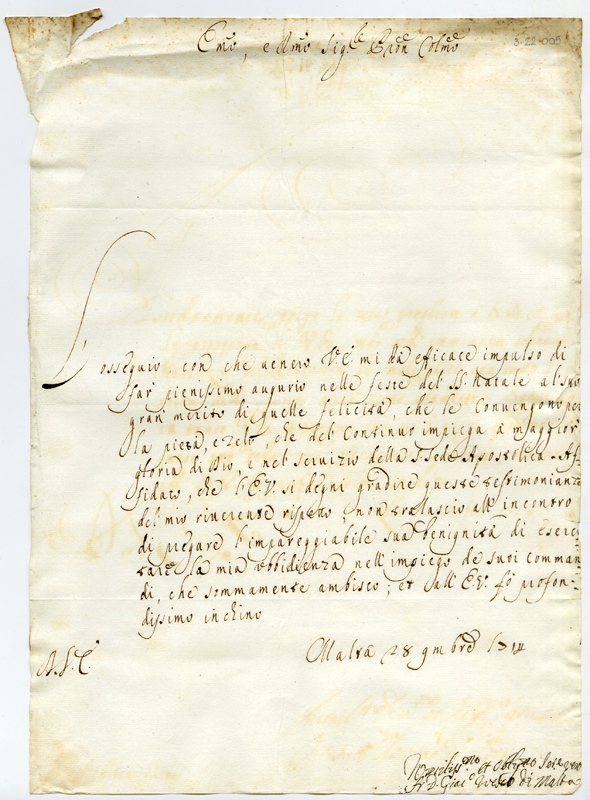 Em̃o, e Rm̃o Sig.re Pro͂n͂e Colm̃o
3-22-005
L'osseguio, con che venero V.E. mi dà eficace impulso di
far pienissimo augurio nelle feste del SS. Natale al suo
gran' merito di quelle felicità, che le convengono per
la pietà, e zelo, che del continuo impiega à maggior
gloria di Dio, e nel servizio della S. Sede Apostolica. Af-
fidato, che l'E.V. si degni gradire queste testimonianze
del mio riverente rispetto, non tralascio all'incontro
di pregare l'impareggiabile sua benignità di eserci-
tare la mia obbidienza nell'impiego de suoi comman
di, che sommamente ambisco; et all'E.V. fò profon-
dissimo inchino
Malta 28 9mbre 1714
Umiliss.mo et Obl.mo Ser.e vero
F. D. Giac.o Vesco di Malta